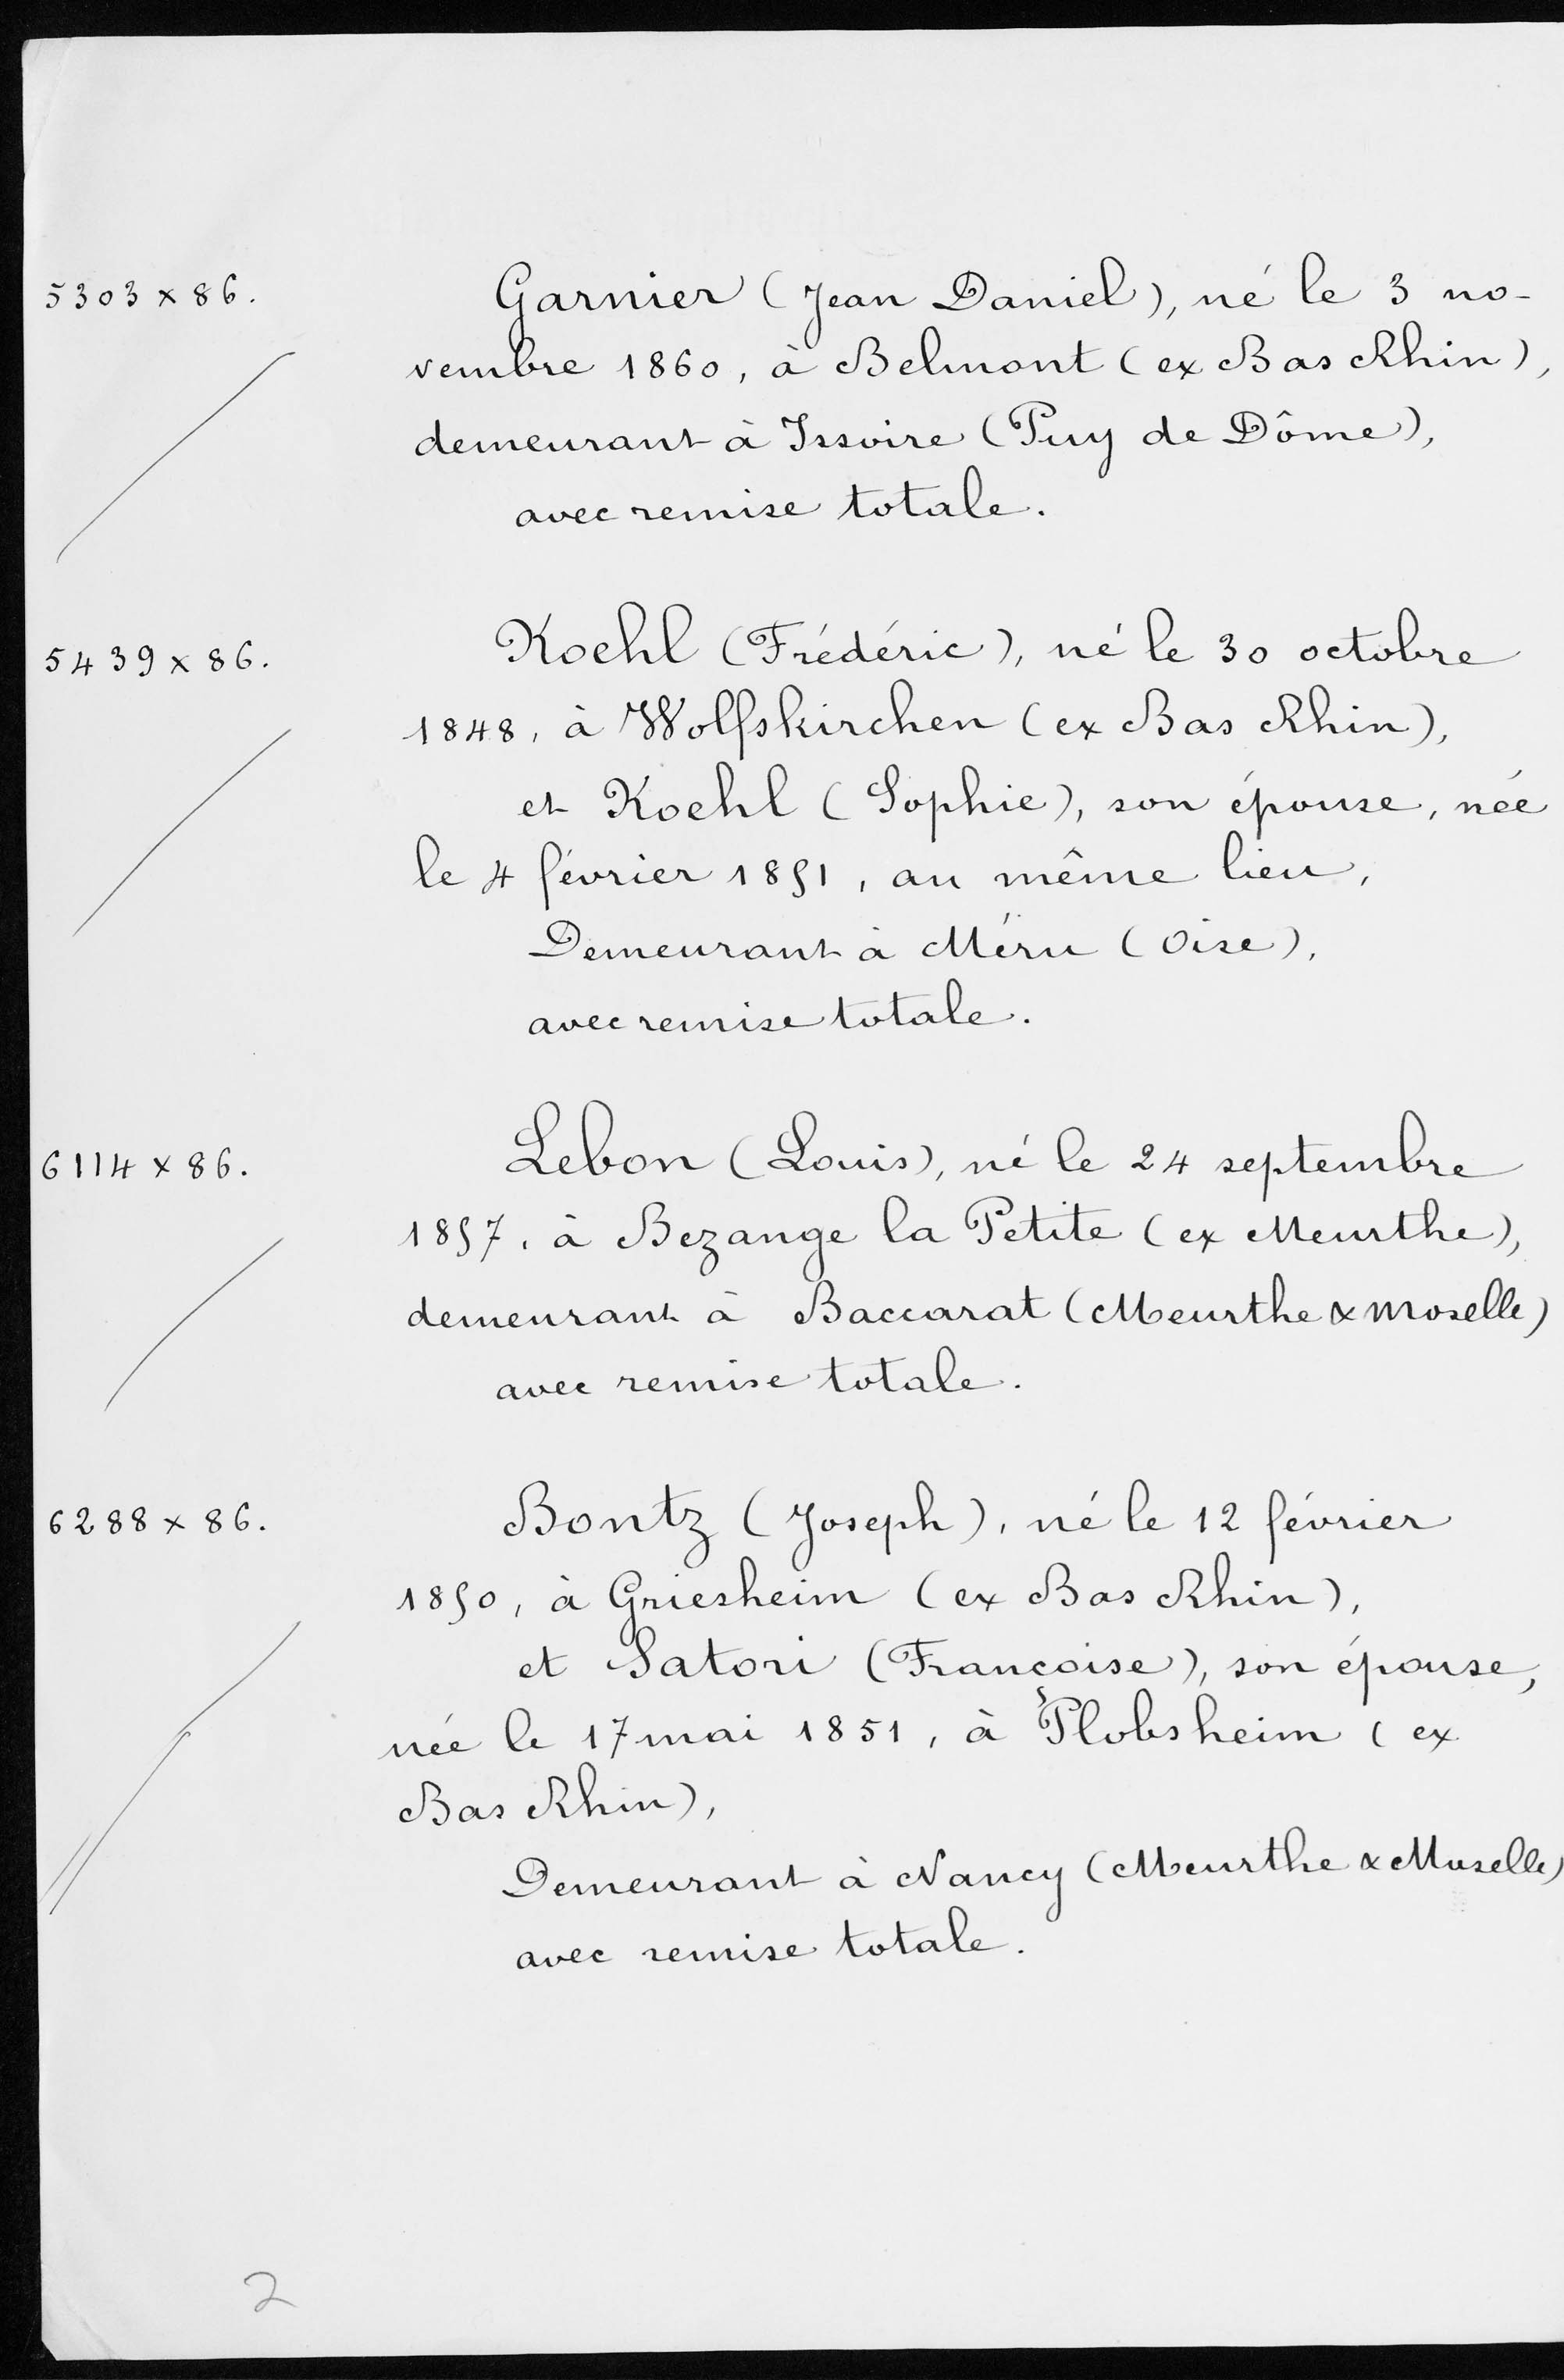 5303 x 86.
Garnier (Jean Daniel), né le 3 no-
vembre 1860, à Belmont (ex Bas Rhin),
demeurant à Issoire (Puy de Dôme),
avec remise totale.
5439 x 86.
Koehl (Frédéric), né le 30 octobre
1848, à Wolfskirchen (ex Bas Rhin),
et Koehl (Sophie), son épouse, née
le 4 février 1851, au même lieu,
Demeurant à Méru (Oise),
avec remise totale.
6114 x 86.
Lebon (Louis), né le 24 septembre
1857, à Bezange la Petite (ex Meurthe),
demeurant à Baccarat (Meurthe & Moselle)
avec remise totale.
6288 x 86.
Bontz (Joseph), né le 12 février
1850, à Griesheim (ex Bas Rhin),
et Satori (Françoise), son épouse,
née le 17 mai 1851, à Plobsheim (ex
Bas Rhin),
Demeurant à Nancy (Meurthe & Moselle)
avec remise totale.
2